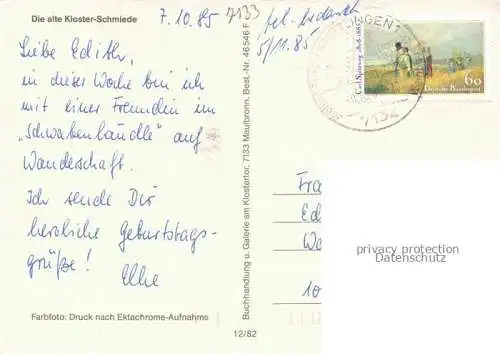 Die alte Kloster-Schmiede
7.10.85
7133
5/11.85
Liebe Edith,
in dieser Woche bin ich
mit einer Freundin im
"Schwabenländle" auf
Wanderschaft.
Ich sende Dir
herzliche Geburtstags-
grüße!
Elke
Farbfoto: Druck nach Ektachrome-Aufnahme
12/82
Buchhandlung u. Galerie am Klostertor, 7133 Maulbronn, Best.-Nr. 46 546 F
LINGEN
7134
Carl Spitzweg 1808-1885
60
Deutsche Bundespost
Fra
Ed
Wa
10
privacy protection
Datenschutz